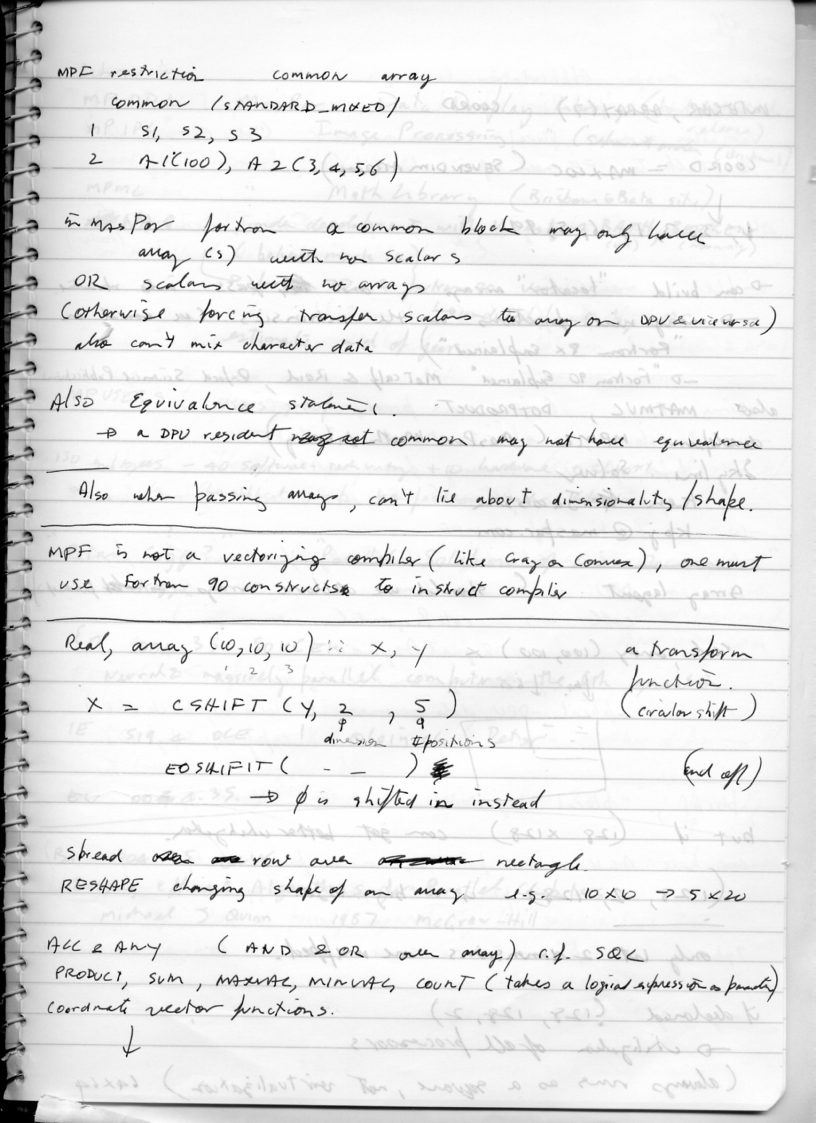 MPF restriction common array
common /STANDARD_MIXED/
1 S1, S2, S3
2 A1(100), A2(3,4,5,6)
in MasPar fortran a common block may only have
array(s) with no scalars
OR scalars with no arrays
(otherwise forcing transfer scalars to array on DPU & vice versa)
also can't mix character data
Also Equivalence statement.
→ a DPU resident common may not have equivalence
Also when passing arrays, can't lie about dimensionality/shape.
MPF is not a vectorizing compiler (like Cray or Convex), one must
use Fortran 90 constructs to instruct compiler
Real, array (10,10,10) :: X, Y a transform
1 2 3 function.
X = CSHIFT (Y, 2, 5) (circular shift)
dimension #positions
EOSHIFIT ( - - ) (end off)
→ ϕ is shifted in instead
spread row over rectangle.
RESHAPE changing shape of an array e.g. 10 x 10 → 5 x 20
ALL & ANY (AND & OR over array) c.f. SQL
PRODUCT, SUM, MAXVAL, MINVAL, COUNT (takes a logical expression as parameter)
Coordinate vector functions.
↓